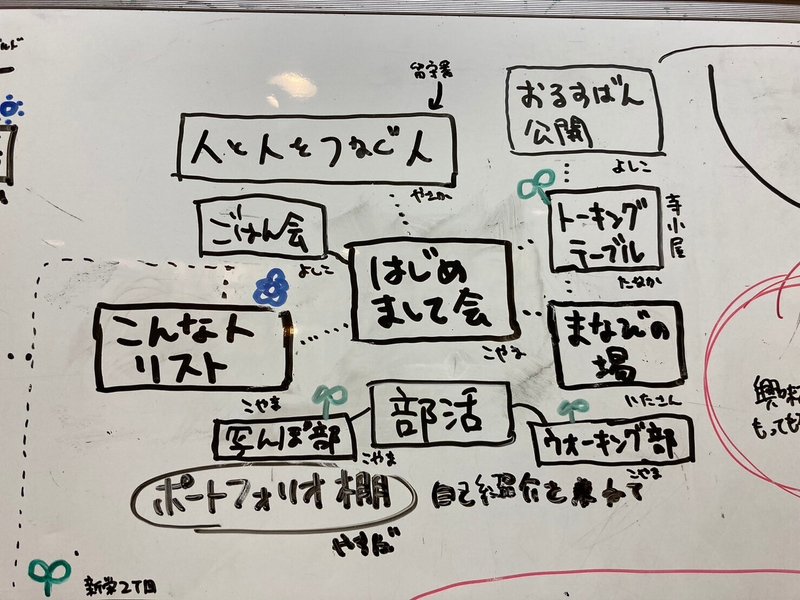 留守番
人と人をつなぐ人
おるすばん
公開
よしこ
ごはん会
よしこ
トーキング
テーブル
寺小屋
たなか
はじめ
まして会
こやま
こんな人
リスト
こやま
まなびの
場
にたさん
部活
こやま
ウオーキング部
こやま
ポートフォリオ棚
自己紹介を兼ねて
やすだ
興味
新栄2丁目